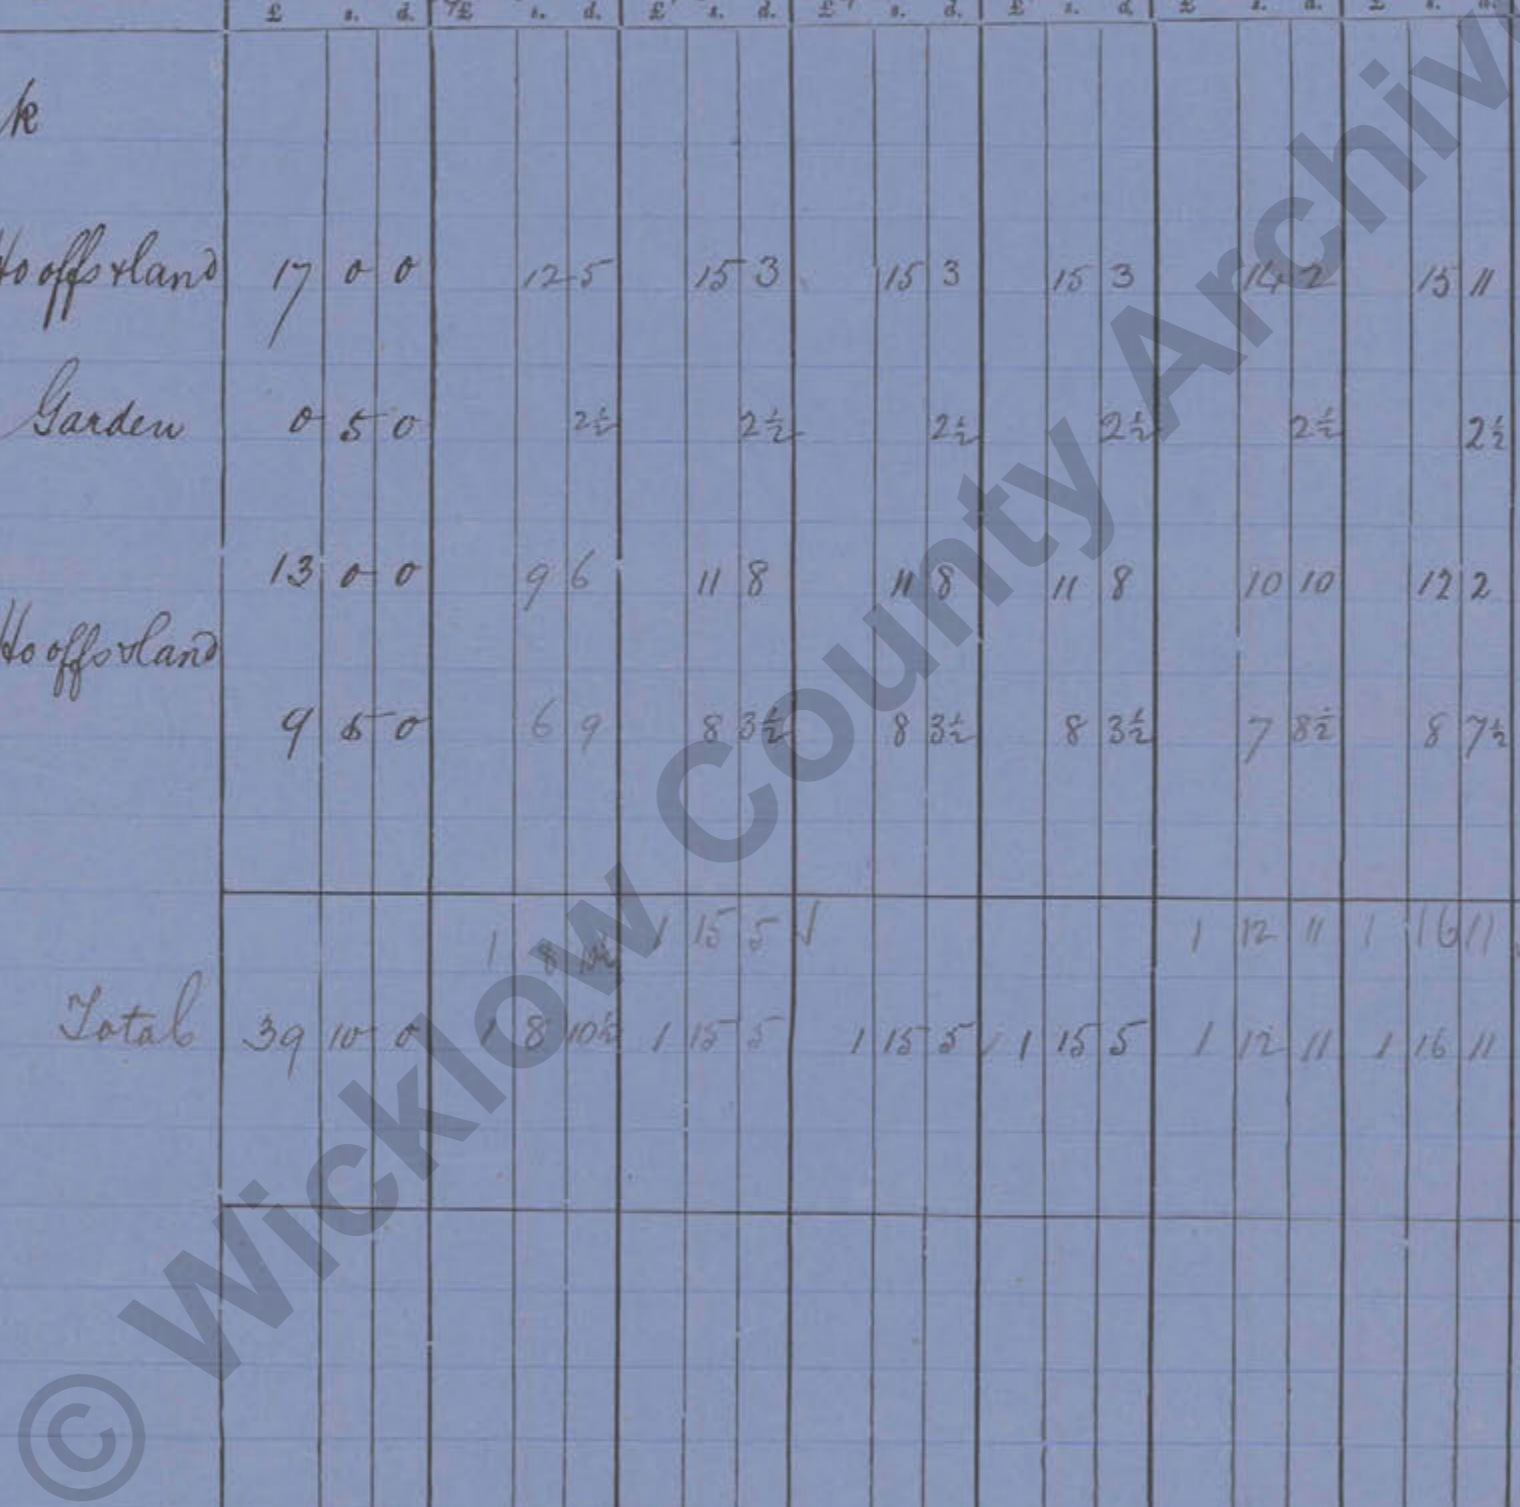 £ s. d. £ s. d. £ s. d. £ s. d. £ s. d. £ s. d. £ s. d.
k
Ho offs & land 17 0 0 12 5 15 3 15 3 15 3 14 2 15 11
Garden 0 5 0 2½ 2½ 2½ 2½ 2½ 2½
13 0 0 9 6 11 8 11 8 11 8 10 10 12 2
Ho offs & land
9 5 0 6 9 8 3½ 8 3½ 8 3½ 7 8½ 8 7½
1 8 10½ 1 15 5 √ 1 12 11 1 16 11
Total 39 10 0 1 8 10½ 1 15 5 1 15 5 1 15 5 1 12 11 1 16 11
© Wicklow County Archiv